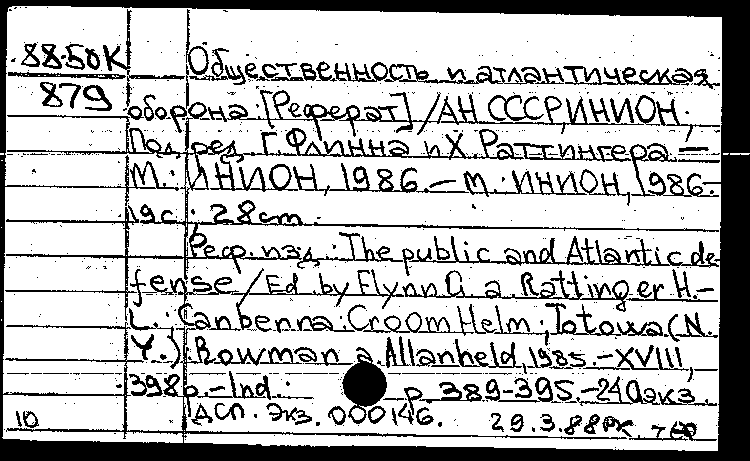 88-50К Общественность и атлантическая
879 оборона: [Реферат] / АН СССР, ИНИОН;
Под ред. Г. Флинна и Х. Раттингера. —
М.: ИНИОН, 1986. — М.: ИНИОН, 1986.
19с.; 28cm.
Реф. изд.: The public and Atlantic de-
fense / Ed. by Flynn G. a. Rattinger H.-
L.; Canbenna: Croom Helm; Totowa (N.
Y.): Rowman a. Allanheld, 1985.-XVIII,
398p.-Ind.: p. 389-395.-240экз.
10 ДСП. Экз. 000146. 29.3.88